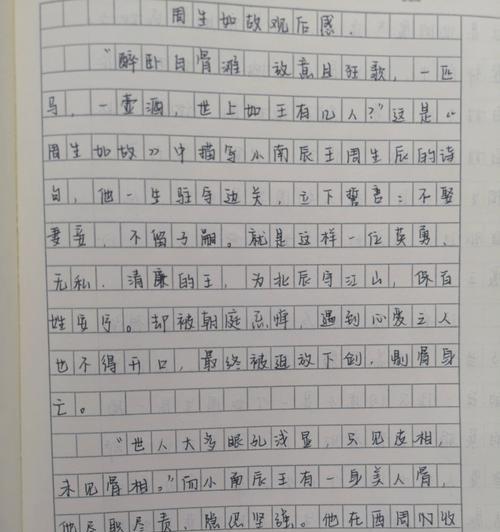 周生如故观后感.
“醉卧白骨滩 放意且狂歌，一匹
马，一壶酒，世上如王有几人？”这是《
周生如故》中描写小南辰王周生辰的诗
句，他一生驻守边关，立下誓言：不娶
妻妾，不留子嗣。就是这样一位英勇、
无私.清廉的王，为北辰守江山，保百
姓安宁。却被朝庭忌惮，遇到心爱之人
也不得开口，最终被迫放下剑，剔骨身
亡。
“世人大多眼孔浅显，只见皮相，
未见骨相。”而小南辰王有一身美人骨，
他尽职尽责，隐忍坚强。他在西周的收